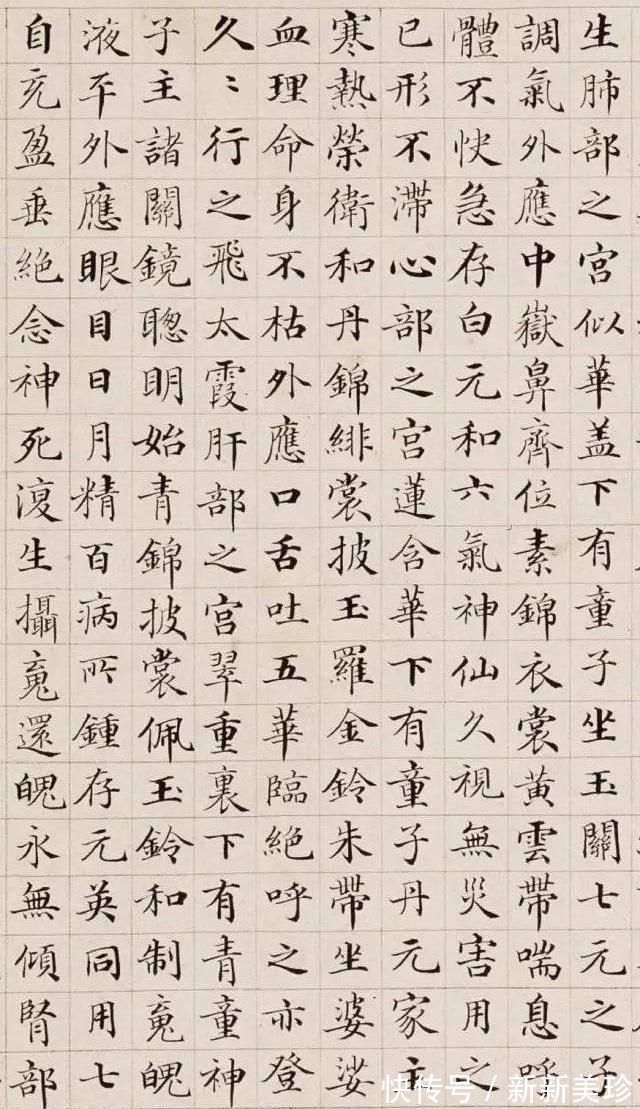 生肺部之宮似華盖下有童子坐玉關七元之子
調氣外應中嶽鼻齊位素錦衣裳黃雲帶喘息呼
體不快急存白元和六氣神仙久視無災害用之
已形不滯心部之宮蓮含華下有童子丹元家主
寒熱榮衛和丹錦緋裳披玉羅金鈴朱帶坐婆娑
血理命身不枯外應口舌吐五華臨絕呼之亦登
久〻行之飛太霞肝部之宮翠重裏下有青童神
子主諸關鏡聰明始青錦披裳佩玉鈴和制䰟魄
液平外應眼目日月精百病所鍾存元英同用七
自充盈垂絕念神死復生攝䰟還魄永無傾腎部
快传号 / 新新美珍